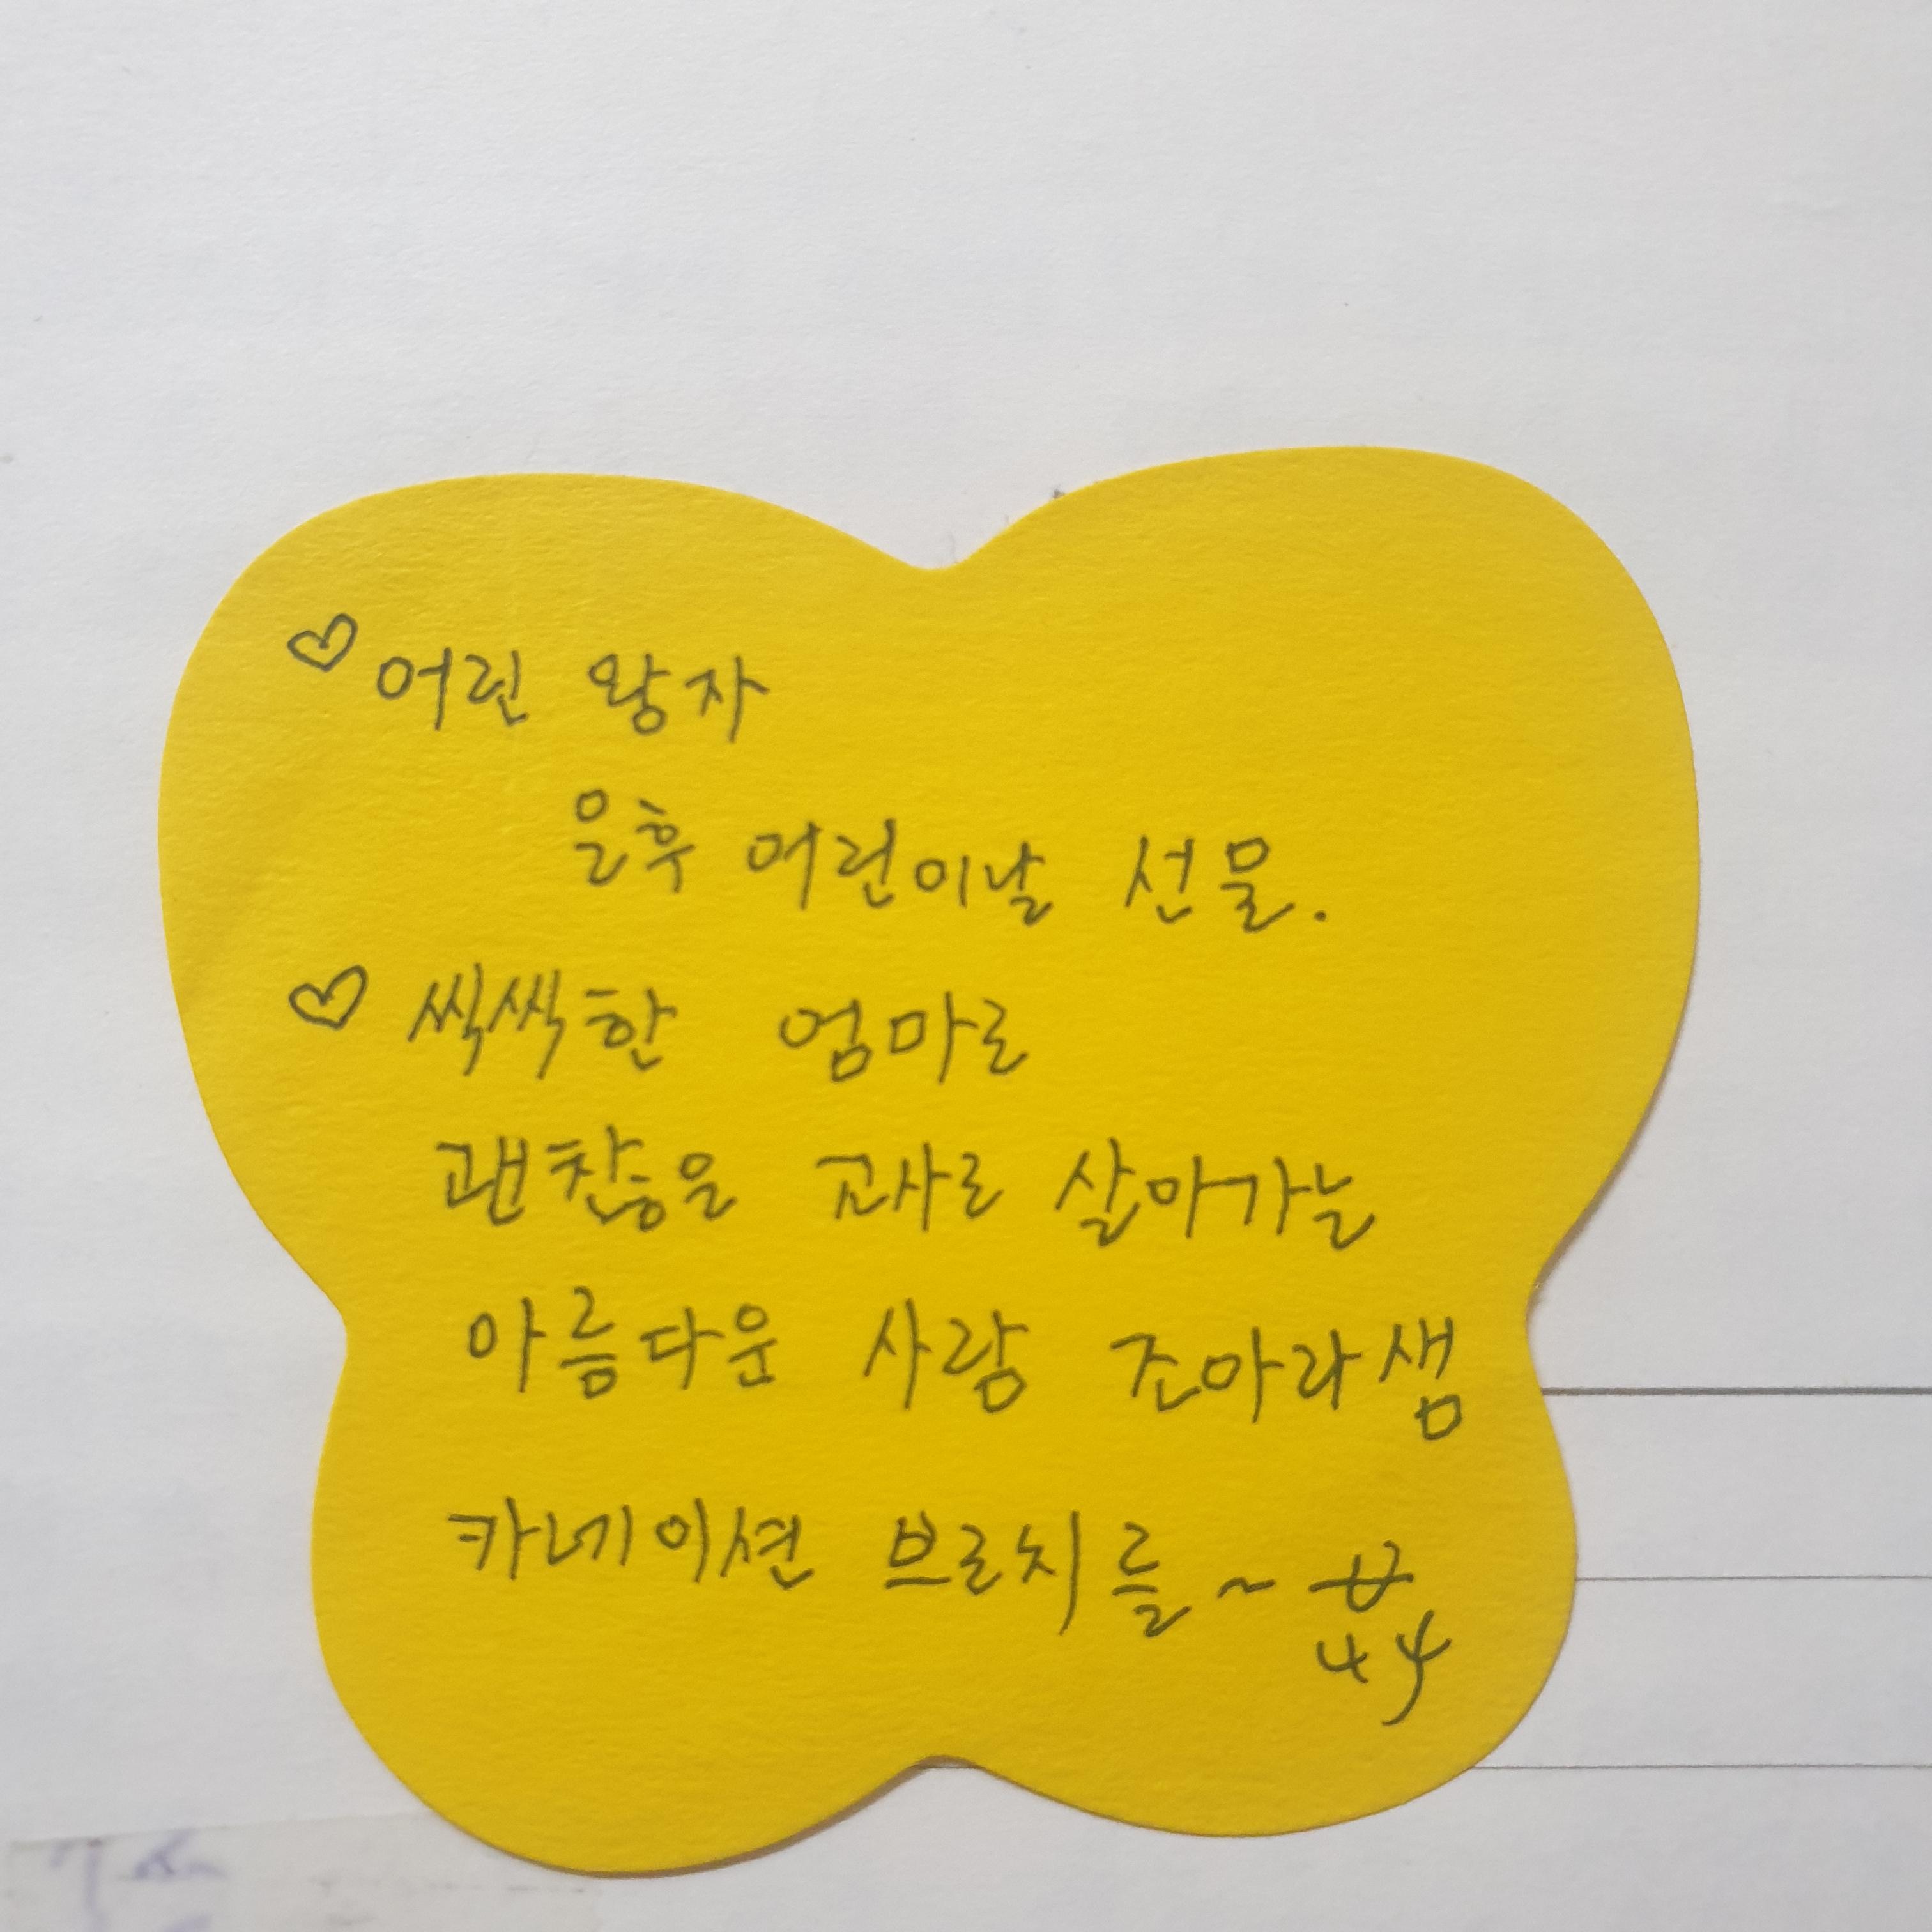 ♡ 어린 왕자
은후 어린이날 선물.
♡ 씩씩한 엄마로
괜찮은 교사로 살아가는
아름다운 사람 조아라샘
카네이션 브로치를~